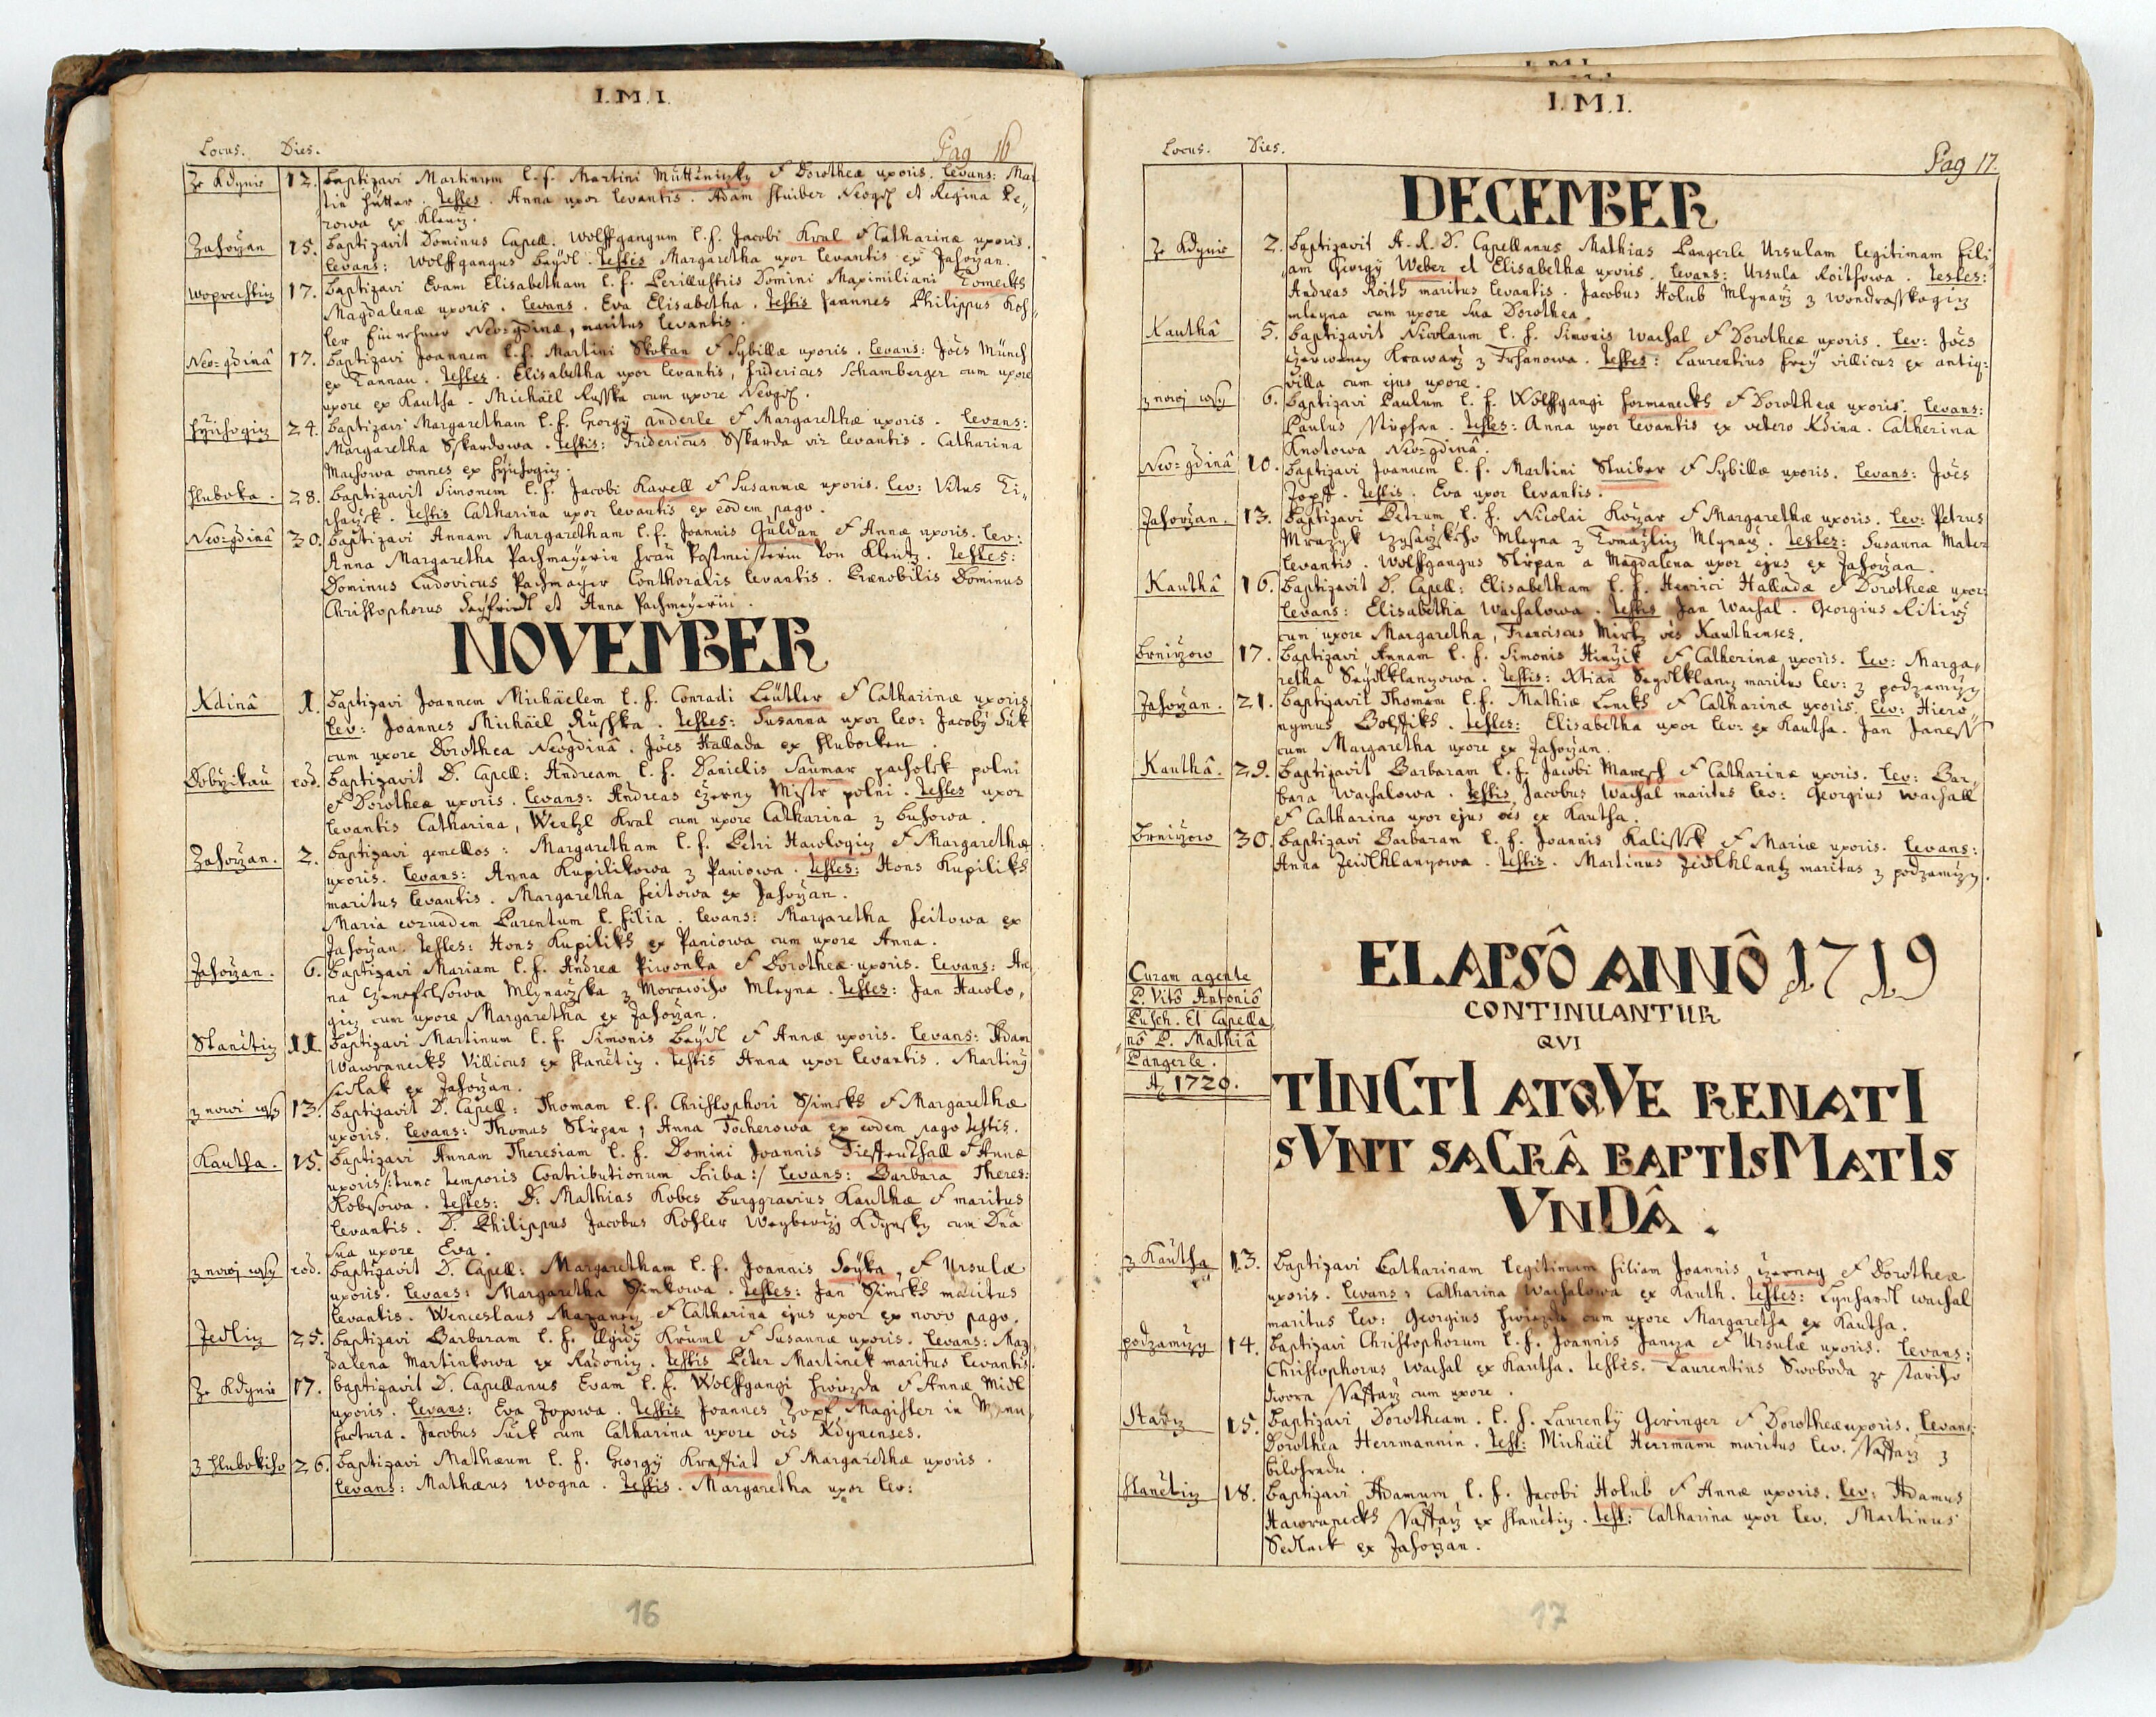 I. M. I.
Locus. Dies. Pag 16
Ze Kdynie 12. Baptizavi Martinum l. f. Martini et Dorotheæ uxoris. Levans: Mar
tin Hütter. Testes. Anna uxor levantis. Adam Stuiber et Regina
rowa ex
Zahorzan 15. Baptizavit Dominus Capell: Wolffgangum l. f. Jacobi Kral et Catharinæ uxoris.
Levans: Wolffgangus Beydl. Testis Margaretha uxor levantis ex Zahorzan.
17. Baptizavi Evam Elisabetham l. f. Perillustris Domini Maximiliani
Magdalenæ uxoris. Levans. Eva Elisabetha. Testis Joannes Philippus Koh
ler Neo=gdinæ, maritus levantis.
Neo=gdinâ 17. Baptizavi Joannem l. f. Martini Skokan et Sybillæ uxoris. Levans: Jōēs Münch
ex Tannau. Testes. Elisabetha uxor levantis, Fridericus Schamberger cum uxore
uxore ex Kautha. Michäel Russka cum uxore
24. Baptizavi Margaretham l. f. Georgÿ anderle et Margarethæ uxoris. Levans:
Margaretha Sskardowa. Testis: Fridericus Sskarda vir levantis. Catharina
Machowa omnes ex
Hluboka. 28. Baptizavit Simonem l. f. Jacobi Kavell et Susannæ uxoris. Lev: Vitus
Testis Catharina uxor levantis ex eodem pago.
Neo=gdinâ 30. Baptizavi Annam Margaretham l. f. Joannis Guldan et Annæ uxoris. Lev:
Anna Margaretha Pachmaÿerin Frau Postmeisterin von Klentz. Testes:
Dominus Ludovicus Pachmaÿer Conthoralis levantis. Prænobilis Dominus
Christophorus Seÿfriedl et Anna Pachmeÿerin.
NOVEMBER
Kdinâ 1. Baptizavi Joannem Michäelem l. f. Conradi Leütler et Catharinæ uxoris
Lev: Joannes Michäel Rushka. Testes: Susanna uxor lev: Jacobÿ Suk
cum uxore Dorothea Neogdinâ. Jōēs Hallada ex
eōd. Baptizavit D. Capell: Andream l. f. Danielis Saumar pacholek polni
et Dorotheæ uxoris. Levans: Andreas Czerny Mistr polni. Testes uxor
levantis Catharina, Wentzl Kral cum uxore Catharina z
Zahorzan. 2. Baptizavi gemellos: Margaretham l. f. Petri Hawlogiz et Margarethæ
uxoris. Levans: Anna Kupilikowa z Paniowa. Testes: Hons Kupiliks
maritus levantis. Margaretha Feitowa ex Zahorzan.
Maria eorundem Parentum l. filia. Levans: Margaretha Feitowa ex
Zahorzan. Testes: Hons Kupiliks ex Paniowa cum uxore Anna.
Zahorzan. 6. Baptizavi Mariam l. f. Andreæ Piwonka et Dorotheæ uxoris. Levans: An
na Mlynarzka z Mleyna. Testes: Jan Hawlo,
giz cum uxore Margaretha ex Zahorzan.
Stanetiz 11. Baptizavi Martinum l. f. Simonis Beÿdl et Annæ uxoris. Levans: Adam
Hawraneks Villicus ex Stanetiz. Testis Anna uxor levantis. Martinÿ
Sedlak ex Zahorzan.
z nowi wsy 13. Baptizavit D. Capell: Thomam l. f. Christophori Ssimeks et Margarethæ
uxoris. Levans: Thomas Stiepan, Anna Tocherowa ex eodem pago testis.
Kautha. 15. Baptizavi Annam Theresiam l. f. Domini Joannis Tieffenthall et Annæ
uxoris /: tunc temporis Contributionum Scriba :/ Levans: Barbara Theres:
Kobesowa. Testes: D: Mathias Kobes Burggravius Kauthæ et maritus
levantis. D. Philippus Jacobus Kohler Kdynsky cum Dnā
sua uxore Eva.
z nowi wsy eōd. Baptizavit D. Capell: Margaretham l. f. Joannis Soÿka, et Ursulæ
uxoris. Levans: Margaretha Simkowa. Testes: Jan Simeks maritus
levantis. Wenceslaus et Catharina ejus uxor ex novo pago.
Zedliz 25. Baptizavi Barbaram l. f. Ægidÿ Kruml et Susannæ uxoris. Levans: Mag
dalena Martinkowa ex Radoniz. Testis Peter Martinek maritus levantis.
Ze Kdynie 17. Baptizavit D. Capellanus Evam l. f. Wolffgangi Hwiezda et Annæ Midl
uxoris. Levans: Eva Zopowa. Testis Joannes Zopf Magister in Manu
factura. Jacobus Suck cum Catharina uxore ōēs Kdynenses.
z Hlubokiho 26. Baptizavi Mathæum l. f. Georgÿ Krastiat et Margarethæ uxoris.
Levans: Mathæus Wogna. Testis. Margaretha uxor lev:
16
I. M. I.
Locus. Dies. Pag 17.
DECEMBER
Ze Kdynie 2. Baptizavit A. R. D. Capellanus Mathias Pangerle Ursulam legitimam fili
am Georgÿ Weber et Elisabethæ uxoris. Levans: Ursula Roithowa. Testes:
Andreas Roith maritus levantis. Jacobus Holub Mlynarz z
mleyna cum uxore sua Dorothea.
Kauthâ 5. Baptizavit Nicolaum l. f. Simonis Wachal et Dorotheæ uxoris. Lev: Jōēs
Czerweney Krawarz z Testes: Laurentius Freÿ villicus ex antiq:
villa cum ejus uxore.
z nowi wsy 6. Baptizavi Paulum l. f. Wolffgangi Formaneks et Dorotheæ uxoris. Levans:
Paulus Stiepan. Testes: Anna uxor levantis ex vetero Kdina. Catherina
Knotowa Neo=gdinâ.
Neo=gdinâ 10. Baptizavi Joannem l. f. Martini Stuiber et Sybillæ uxoris. Levans: Jōēs
Zopff. Testis. Eva uxor levantis.
Zahorzan. 13. Baptizavi Petrum l. f. Nicolai Kozar et Margarethæ uxoris. Lev: Petrus
Mrazyk Mleyna z Mlynarz. Testes: Susanna Mater
levantis. Wolffgangus Stiepan a Magdalena uxor ejus ex Zahorzan.
Kauthâ 16. Baptizavit D. Capell: Elisabetham l. f. Henrici Halladæ et Dorotheæ uxor:
Levans: Elisabetha Wachalowa. Testis Jan Wachal. Georgius
cum uxore Margaretha, Franciscus Mirtz ōēs Kauthenses.
Brnirzow 17. Baptizavi Annam l. f. Simonis Hinzik et Catherinæ uxoris. Lev: Marga,
retha Seydlklanzowa. Testis: Xtian Seydlklanz maritus lev: z podzamczy
Zahorzan. 21. Baptizavit Thomam l. f. Mathiæ Lenks et Catharinæ uxoris. Lev: Hiero
nymus Testes: Elisabetha uxor lev: ex Kautha. Jan Janess
cum Margaretha uxore ex Zahorzan.
Kauthâ. 29. Baptizavit Barbaram l. f. Jacobi Maresch et Catharinæ uxoris. Lev: Bar,
bara Wachalowa. Testis Jacobus Wachal maritus lev: Georgius Wachall
et Catharina uxor ejus ōēs ex Kautha.
Brnirzow 30. Baptizavi Barbaram l. f. Joannis Kalissk et Mariæ uxoris. Levans:
Anna Zeidlklanzowa. Testis. Martinus Zeidlklantz maritus z podzamczy.
ELAPSÔ ANNÔ 1719
CONTINUANTUR
QVI
TInCtI atqVe renatI
sVnt saCrâ baptIsMatIs
VnDâ.
Curam agente
P. Vitô Antoniô
Pusch. Et Capella,
nô P. Mathiâ
Pangerle.
Aō 1720.
z Kautha 13. Baptizavi Catharinam legitimam filiam Joannis Czerney et Dorotheæ
uxoris. Levans: Catharina Wachalowa ex Kauth. Testes: Lynhardt Wachal
maritus lev: Georgius Hwiezda cum uxore Margaretha ex Kautha.
podzamczy 14. Baptizavi Christophorum l. f. Joannis Janza et Ursulæ uxoris. Levans:
Christophorus Wachal ex Kautha. Testis. Laurentius Swoboda ze stariho
dwora Ssaffarz cum uxore.
Starz 15. Baptizavi Dorotheam. l. f. Laurentÿ Geringer et Dorotheæ uxoris. Levans:
Dorothea Herrmannin. Test: Michäel Herrmann maritus lev. Ssaffarz z
bilohradu.
Stanetiz 18. Baptizavi Adamum l. f. Jacobi Holub et Annæ uxoris. Lev: Adamus
Hawraneks Ssaffarz ex Stanetiz. Test: Catharina uxor lev. Martinus
Sedlack ex Zahorzan.
17